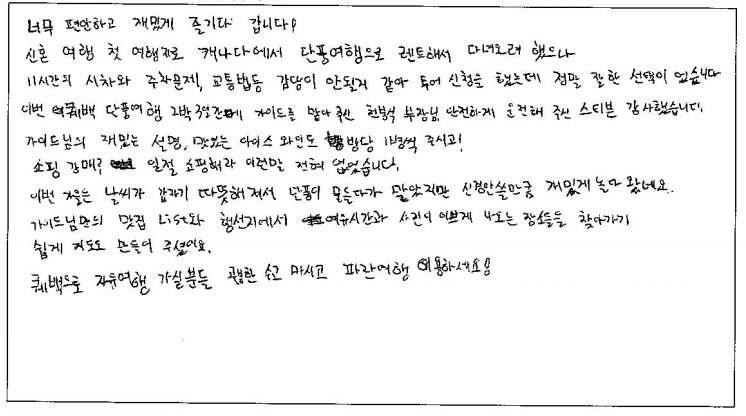 너무 편안하고 재밌게 즐기다 갑니다!
신혼 여행 첫 여행지로 캐나다에서 단풍여행으로 렌트해서 다녀오려 했으나
11시간의 시차와 주차문제, 교통법등 감당이 안될거 같아 투어 신청을 했는데 정말 잘한 선택이 었습니다
이번 퀘백 단풍여행 2박 3일간에 가이드를 맡아 주신 헌봉석 부장님 안전하게 운전해 주신 스티븐 감사했습니다.
가이드님의 재밌는 설명, 맛있는 아이스 와인도 방당 1병씩 주시고!
쇼핑 강매? 일절 쇼핑해라 이런말 전혀 없었습니다.
이번 가을은 날씨가 갑자기 따뜻해져서 단풍이 물든다가 말았지만 신경안쓸만큼 재밌게 놀다 왔네요.
가이드님만의 맛집 List와 행선지에서 여유시간과 사진이 이쁘게 나오는 장소들을 찾아가기
쉽게 지도도 만들어 주셨어요.
퀘백으로 자유여행 가실분들 괜한 수고 마시고 파란여행 이용하세요!